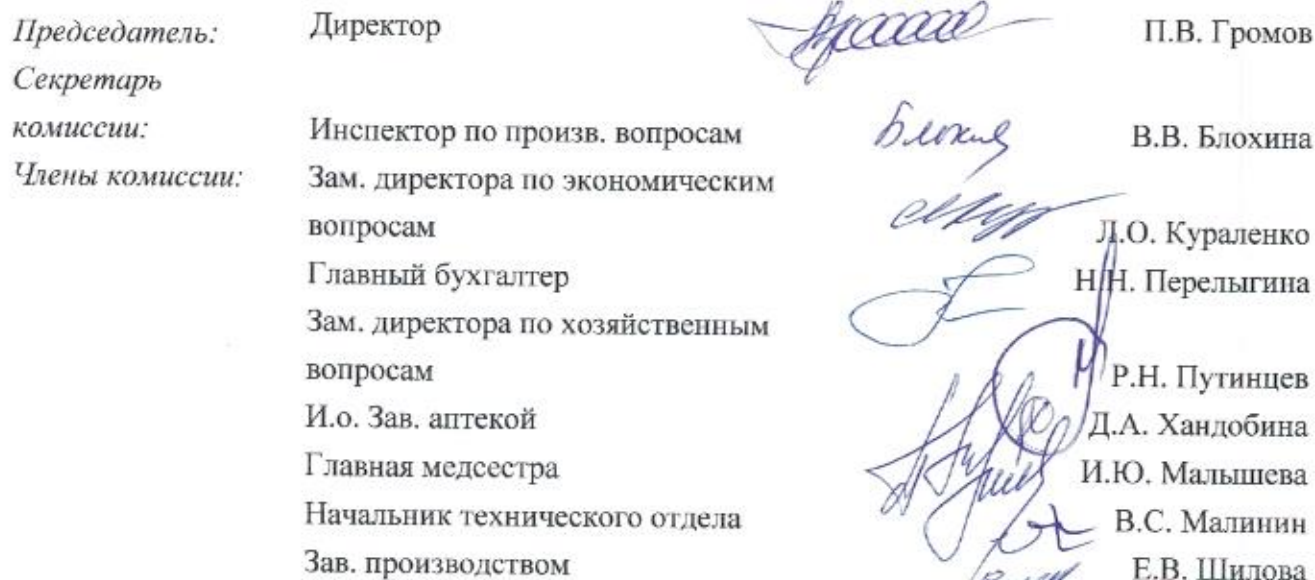 Председатель: Директор П.В. Громов
Секретарь
комиссии: Инспектор по произв. вопросам В.В. Блохина
Члены комиссии: Зам. директора по экономическим
вопросам Л.О. Кураленко
Главный бухгалтер Н.Н. Перелыгина
Зам. директора по хозяйственным
вопросам Р.Н. Путинцев
И.о. Зав. аптекой Д.А. Хандобина
Главная медсестра И.Ю. Малышева
Начальник технического отдела В.С. Малинин
Зав. производством Е.В. Шилова